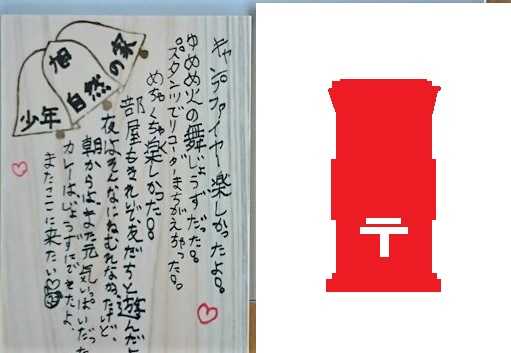 キャンプファイヤー楽しかったよ。
ゆめめ火の舞じょうずだった。
スタンツでリコーダーまちがえちゃった。
めちゃくちゃ楽しかった。
部屋もきれいで、友だちと遊んだよ
夜はそんなにねむれなかったけど、
朝からはまた元気いっぱいだった
カレーはじょうずにできたよ、
またここに来たい
旭
自然の家
少年
〒